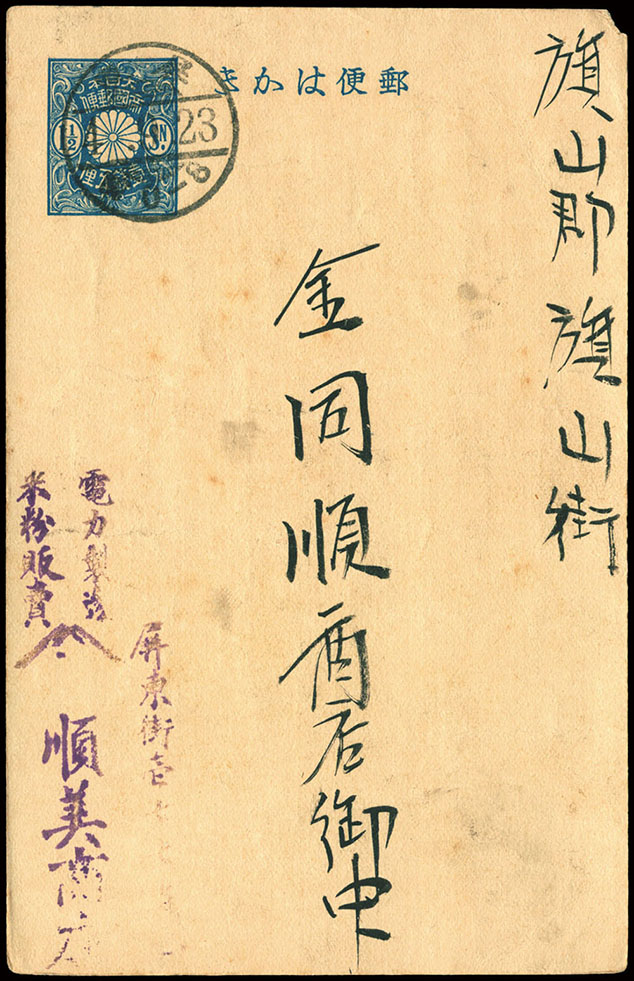 郵便はかき
大日本
帝國郵便
1½ SN.
壹錢五厘
14 . . 23
旗山郡旗山街
金同順商店御中
電力製造
米粉販賣
屏東街壱
順美商店